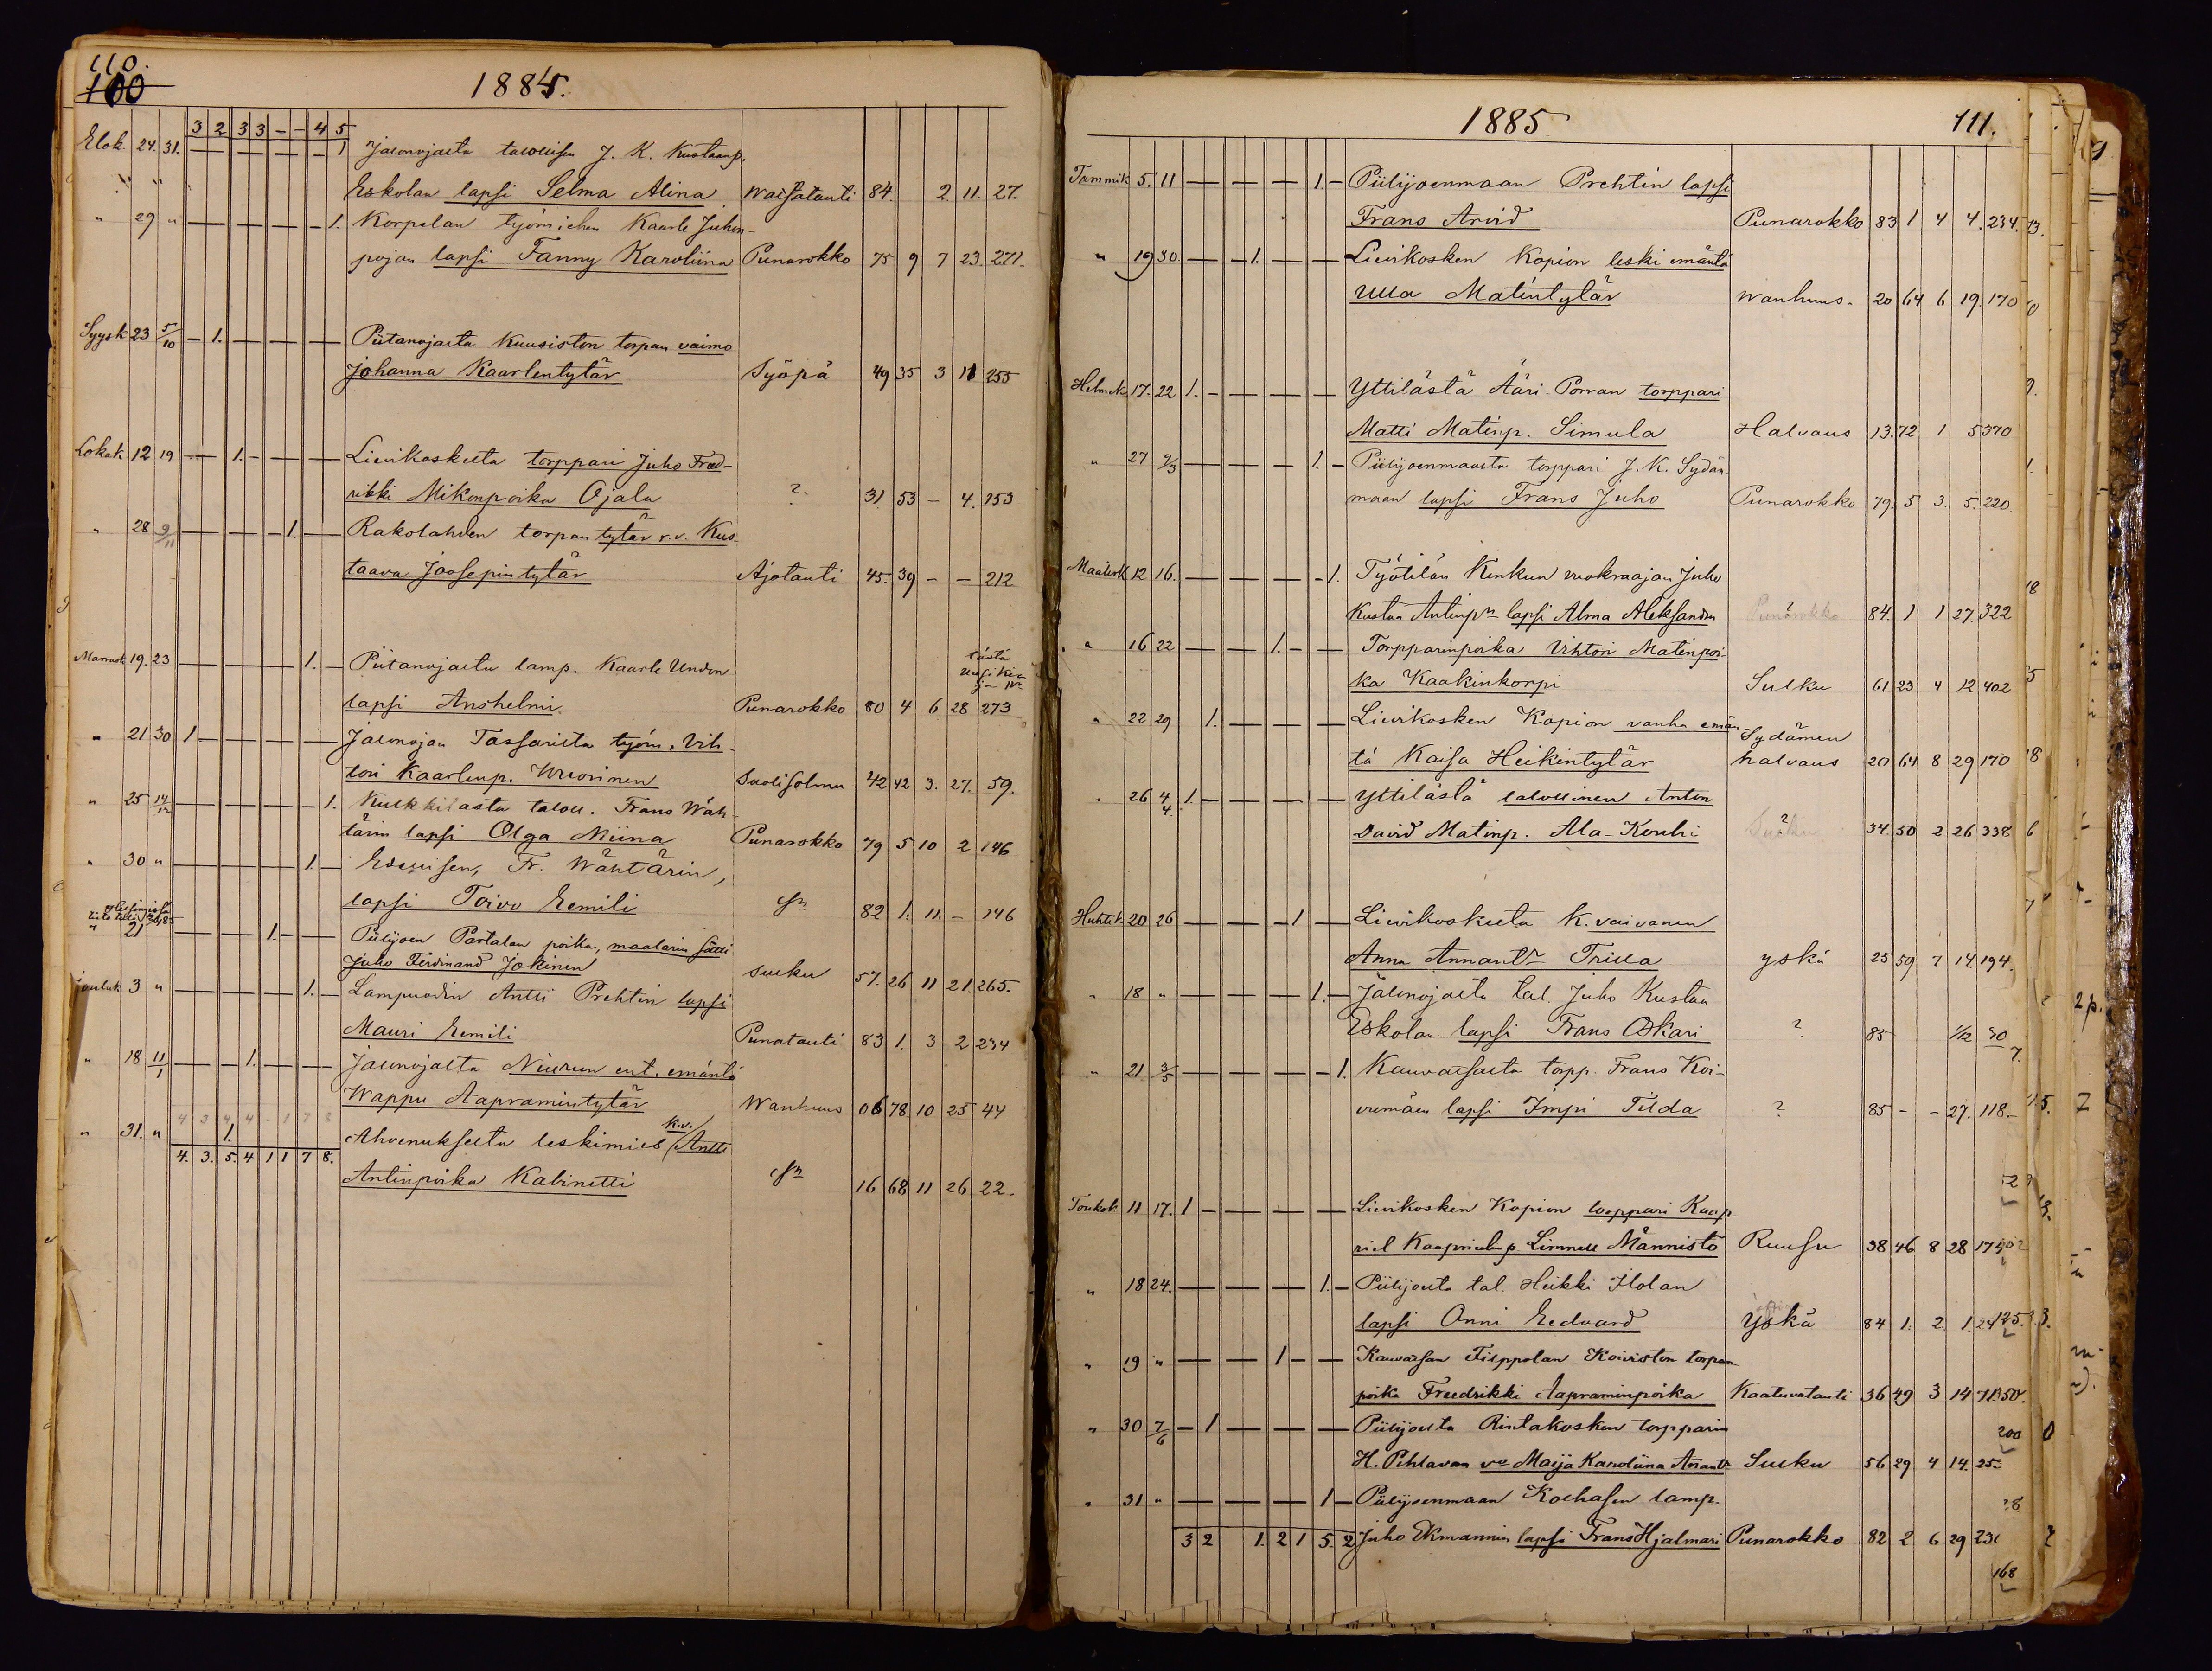 110.
100
1884.
3 2 3 3 - - 4 5
Elok 24. 31. — — — — 1 Jalonojalta talollisen J. K. Kustaanp.
" " Eskolan lapsi Selma Alina Watsatauti 84. 2. 11. 27.
" 29 " — — — — 1. Korpelan työmiehen Kaarle Juhon-
pojan lapsi Fanny Karoliina Punarokko 75 9 7 23. 271.
Syysk 23 5/10 — 1. — — — — Piitanojalta Kuusiston torpan vaimo
Johanna Kaarlentytär Syöpä 49 35 3 11 255
Lokak 12 19 — 1. — — — Lievikoskelta torppari Juho Fred-
rikki Mikonpoika Ojala ? 31 53 - 4. 153
" 28 9/11 — — — 1. — Rakolahden torpan tytär r.v. Kus-
taava Joosepintytär Ajotauti 45. 39 - - 212
Marrask 19. 23 — — — — 1. — Piitanojalta lamp. Kaarle Undon
tästä
lapsi Anshelmi Punarokko 80 4 6 28 273
" 21 30 1 — — — — — Jalonojan Tassarista työm. Vih-
tori Kaarlenp. Wuorinen Suolisolmu 42 42 3. 27. 59.
" 25 14/12 — — — — 1. Kulkkilasta taloll. Frans Wäh-
tärin lapsi Olga Miina Punarokko 79 5 10 2 146
" 30 " — — — — 1. — Edellisen, Fr. Wähtärin,
lapsi Toivo Eemili Sm 82 1. 11. - 146
Helsingissä
" 21 — — — 1. — — Piilijoen Partalan poika, maalarin sälli
Juho Ferdinand Jokinen Sulku 57. 26 11 21. 265.
Jouluk 3 " — — — — 1. — Lampuodin Antti Prehtin lapsi
Mauri Eemili Punatauti 83 1. 3 2 234
" 18 11/1 — — 1. — — Jalonojalta Niurun ent. emäntä
Wappu Aapramintytär Wanhuus 06 78 10 25 44
4 3 4 4 - 1 7 8
k.v.
" 31. " 1. Ahvenukselta leskimies Antti
4. 3. 5. 4 1 1 7 8.
Antinpoika Kabinetti Sm 16 68 11 26 22.
1885
111.
Tammik 5. 11 — — — 1. — Piilijoenmaan Prehtin lapsi
Frans Arvid Punarokko 83 1 4 4. 234.
" 19 30 — 1. — — Lievikosken Kopion leski emäntä
Ulla Matintytär Wanhuus. 20 64 6 19. 170
Helmik 17. 22 1. — — — — Yttilästä Ääri-Porran torppari
Matti Matinp. Simula Halvaus 13. 72 1 5 370
" 27 9/3 — — — 1. — Piilijoenmaasta torppari J. K. Sydän-
maan lapsi Frans Juho Punarokko 79. 5 3. 5. 220.
Maalisk 12 16. — — — — 1. Työtilän Kinkun vuokraajan Juho
Kustaa Antinpn lapsi Alma Aleksandra ? 84. 1 1 27. 322
" 16 22 — — 1. — — Torpparinpoika Vihtori Matinpoi-
ka Kaakinkorpi Sulku 61. 23 4 12 402
" 22 29 1. — — — Lievikosken Kopion vanha emän-
tä Kaisa Heikintytär Sydämen
halvaus 20 64 8 29 170
" 26 4/4 1. — — — — Yttilästä talollinen Anton
David Matinp. Ala-Kouhi ? 34. 50 2 26 338
Huhtik 20 26 — — — 1 — Lievikoskelta k. vaivanen
Anna Annantr Trilla yskä 25 59 7 14. 194.
" 18 " — — — 1. — Jalonojalta tal. Juho Kustaa
Eskolan lapsi Frans Oskari ? 85 1/12 30
" 21 3/5 — — — — 1. Kauvatsalta torpp. Frans Koi-
vumäen lapsi Impi Tilda ? 85 - - 27. 118.
Toukok 11 17. 1 — — — — Lievikosken Kopion torppari Kaap-
riel Kaaprielinp. Limnell Männistö Ruusu 38 46 8 28
" 18 24. — — — 1. — Piilijoelta tal. Heikki Ilolan
lapsi Onni Eedvard Yskä 84 1. 2 1.
" 19 " — — 1 — — Kauvatsan Filppolan Koiviston torpan
poika Freedrikki Aapraminpoika Kaatuvatauti 36 49 3 14
" 30 7/6 — 1 — — — — Piilijoelta Rintakosken torpparin
200
H. Pihlavan vo Maija Karoliina Antintr Sulku 56 29 4 14.
" 31 " — — — 1 — Piilijoenmaan Kolhasen lamp.
3 2 1. 2 1 5. 2 Juho Ekmannin lapsi Frans Hjalmari Punarokko 82 2 6 29 231
168